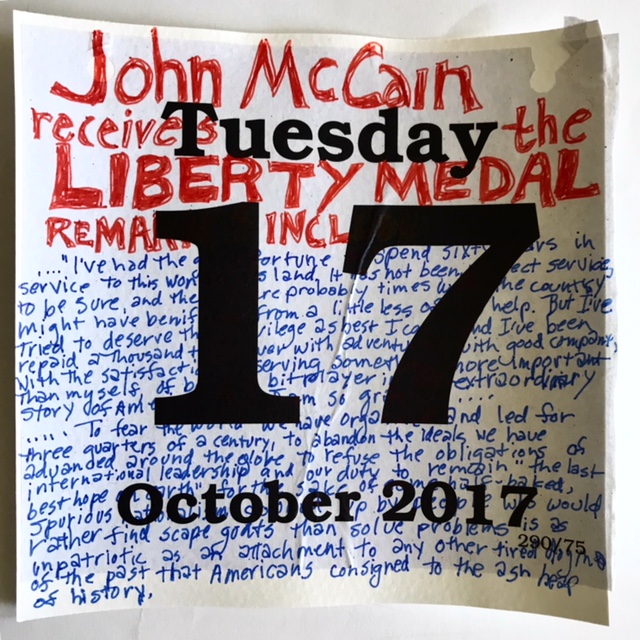 John McCain
receives the
Tuesday
LIBERTY MEDAL
17
...."I've had the spend sixty in
service to this land. It has not been service,
to be sure, and the probably times the country
might have benif from a little less of help. But I've
Tried to deserve the as best I and I've been
repaid a thousand with with good company,
With the satisfact serving more important
than myself, of bit player in extraordinary
story of Am am so
..... To fear the world we have and led for
three quarters of a century, to abandon the ideals we have
advanced around the globe, to refuse the obligations of
international leadership and our duty to remain "the last
best hope of for the sake of baked,
spurious by who would
October 2017
rather find scape goats than solve problems is as
290/75
unpatriotic as an attachment to any other tired
of the past that Americans consigned to the ash heap
of history.